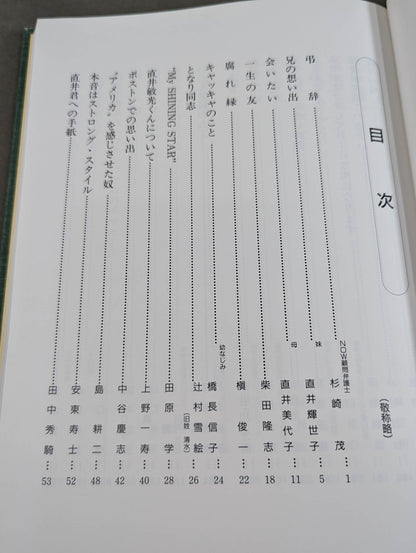 目次
(敬称略)
弔辞……NOW顧問弁護士 杉崎 茂…1
兄の想い出……妹 直井輝世子…5
会いたい……母 直井美代子…11
一生の友……柴田隆志…18
腐れ縁……槇 俊一…22
キャッキャのこと……幼なじみ 橋長信子…24
となり同志……辻村雪絵(旧姓 清水)…26
“My SHINING STAR”……田原 学…28
直井敏光くんについて……上野一寿…40
ボストンでの思い出……中谷慶志…42
“アメリカ”を感じさせた奴……島 耕二…48
本音はストロング・スタイル……安東寿士…52
直井君への手紙……田中秀騎…53